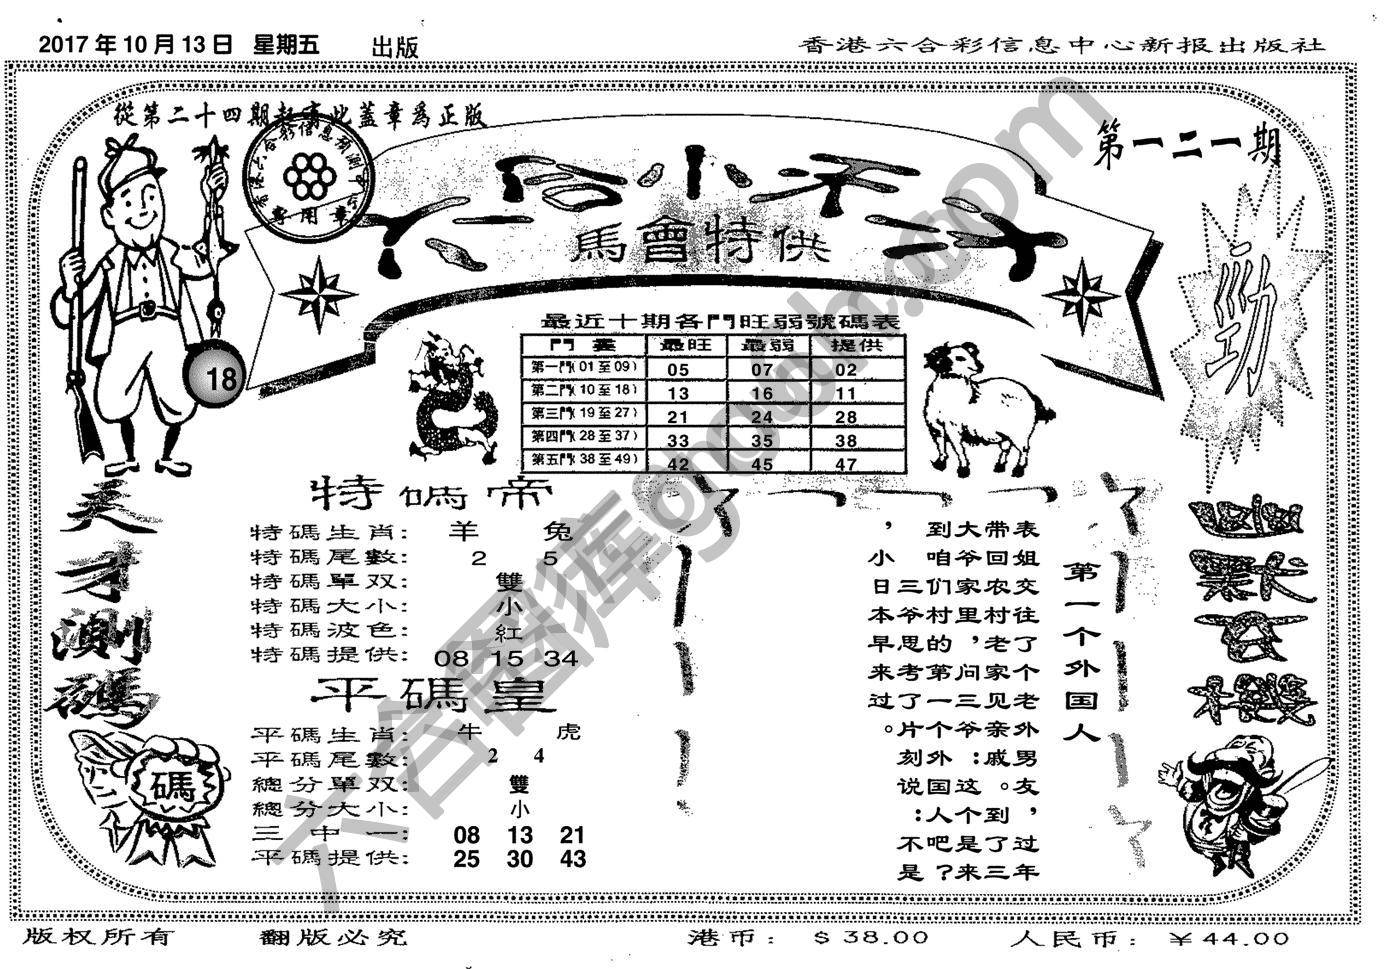 2017年10月13日 星期五 出版
香港六合彩信息中心新报出版社
從第二十四期起實此蓋章爲正版
第一二一期
六合小子
馬會特供
專用章
18
勁
最近十期各門旺弱號碼表
門 最旺 最弱 提供
第一門(01至09) 05 07 02
第二門(10至18) 13 16 11
第三門(19至27) 21 24 28
第四門(28至37) 33 35 38
第五門(38至49) 42 45 47
天才測碼
碼
特碼帝
特碼生肖: 羊 兔
特碼尾數: 2 5
特碼單双: 雙
特碼大小: 小
特碼波色: 紅
特碼提供: 08 15 34
平碼皇
平碼生肖: 牛 虎
平碼尾數: 2 4
總分單双: 雙
總分大小: 小
三中一: 08 13 21
平碼提供: 25 30 43
第一个外国人
表姐交往了个老外男友,过年
带回农村老家见亲戚。到了三
大爷家里,问三爷:这个是来
到咱们村的第一个外国人吧?
三爷思考了片刻说:不是
,小日本早来过。
版权所有 翻版必究
港币: $38.00
人民币: ￥44.00
六合图库ghgdh.com